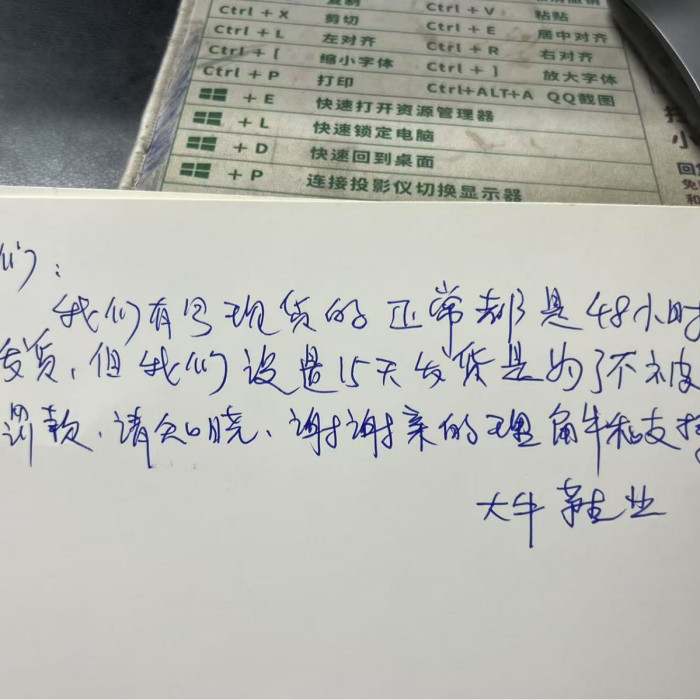 复制
Ctrl + X 剪切 Ctrl + V 粘贴
Ctrl + L 左对齐 Ctrl + E 居中对齐
Ctrl + [ 缩小字体 Ctrl + R 右对齐
Ctrl + P 打印 Ctrl + ] 放大字体
Ctrl+ALT+A QQ截图
+ E 快速打开资源管理器
+ L 快速锁定电脑
+ D 快速回到桌面
+ P 连接投影仪切换显示器
们:
我们有号现货的正常都是48小时
发货,但我们设置15天发货是为了不被
罚款,请知晓、谢谢亲的理解和支持
大牛鞋业